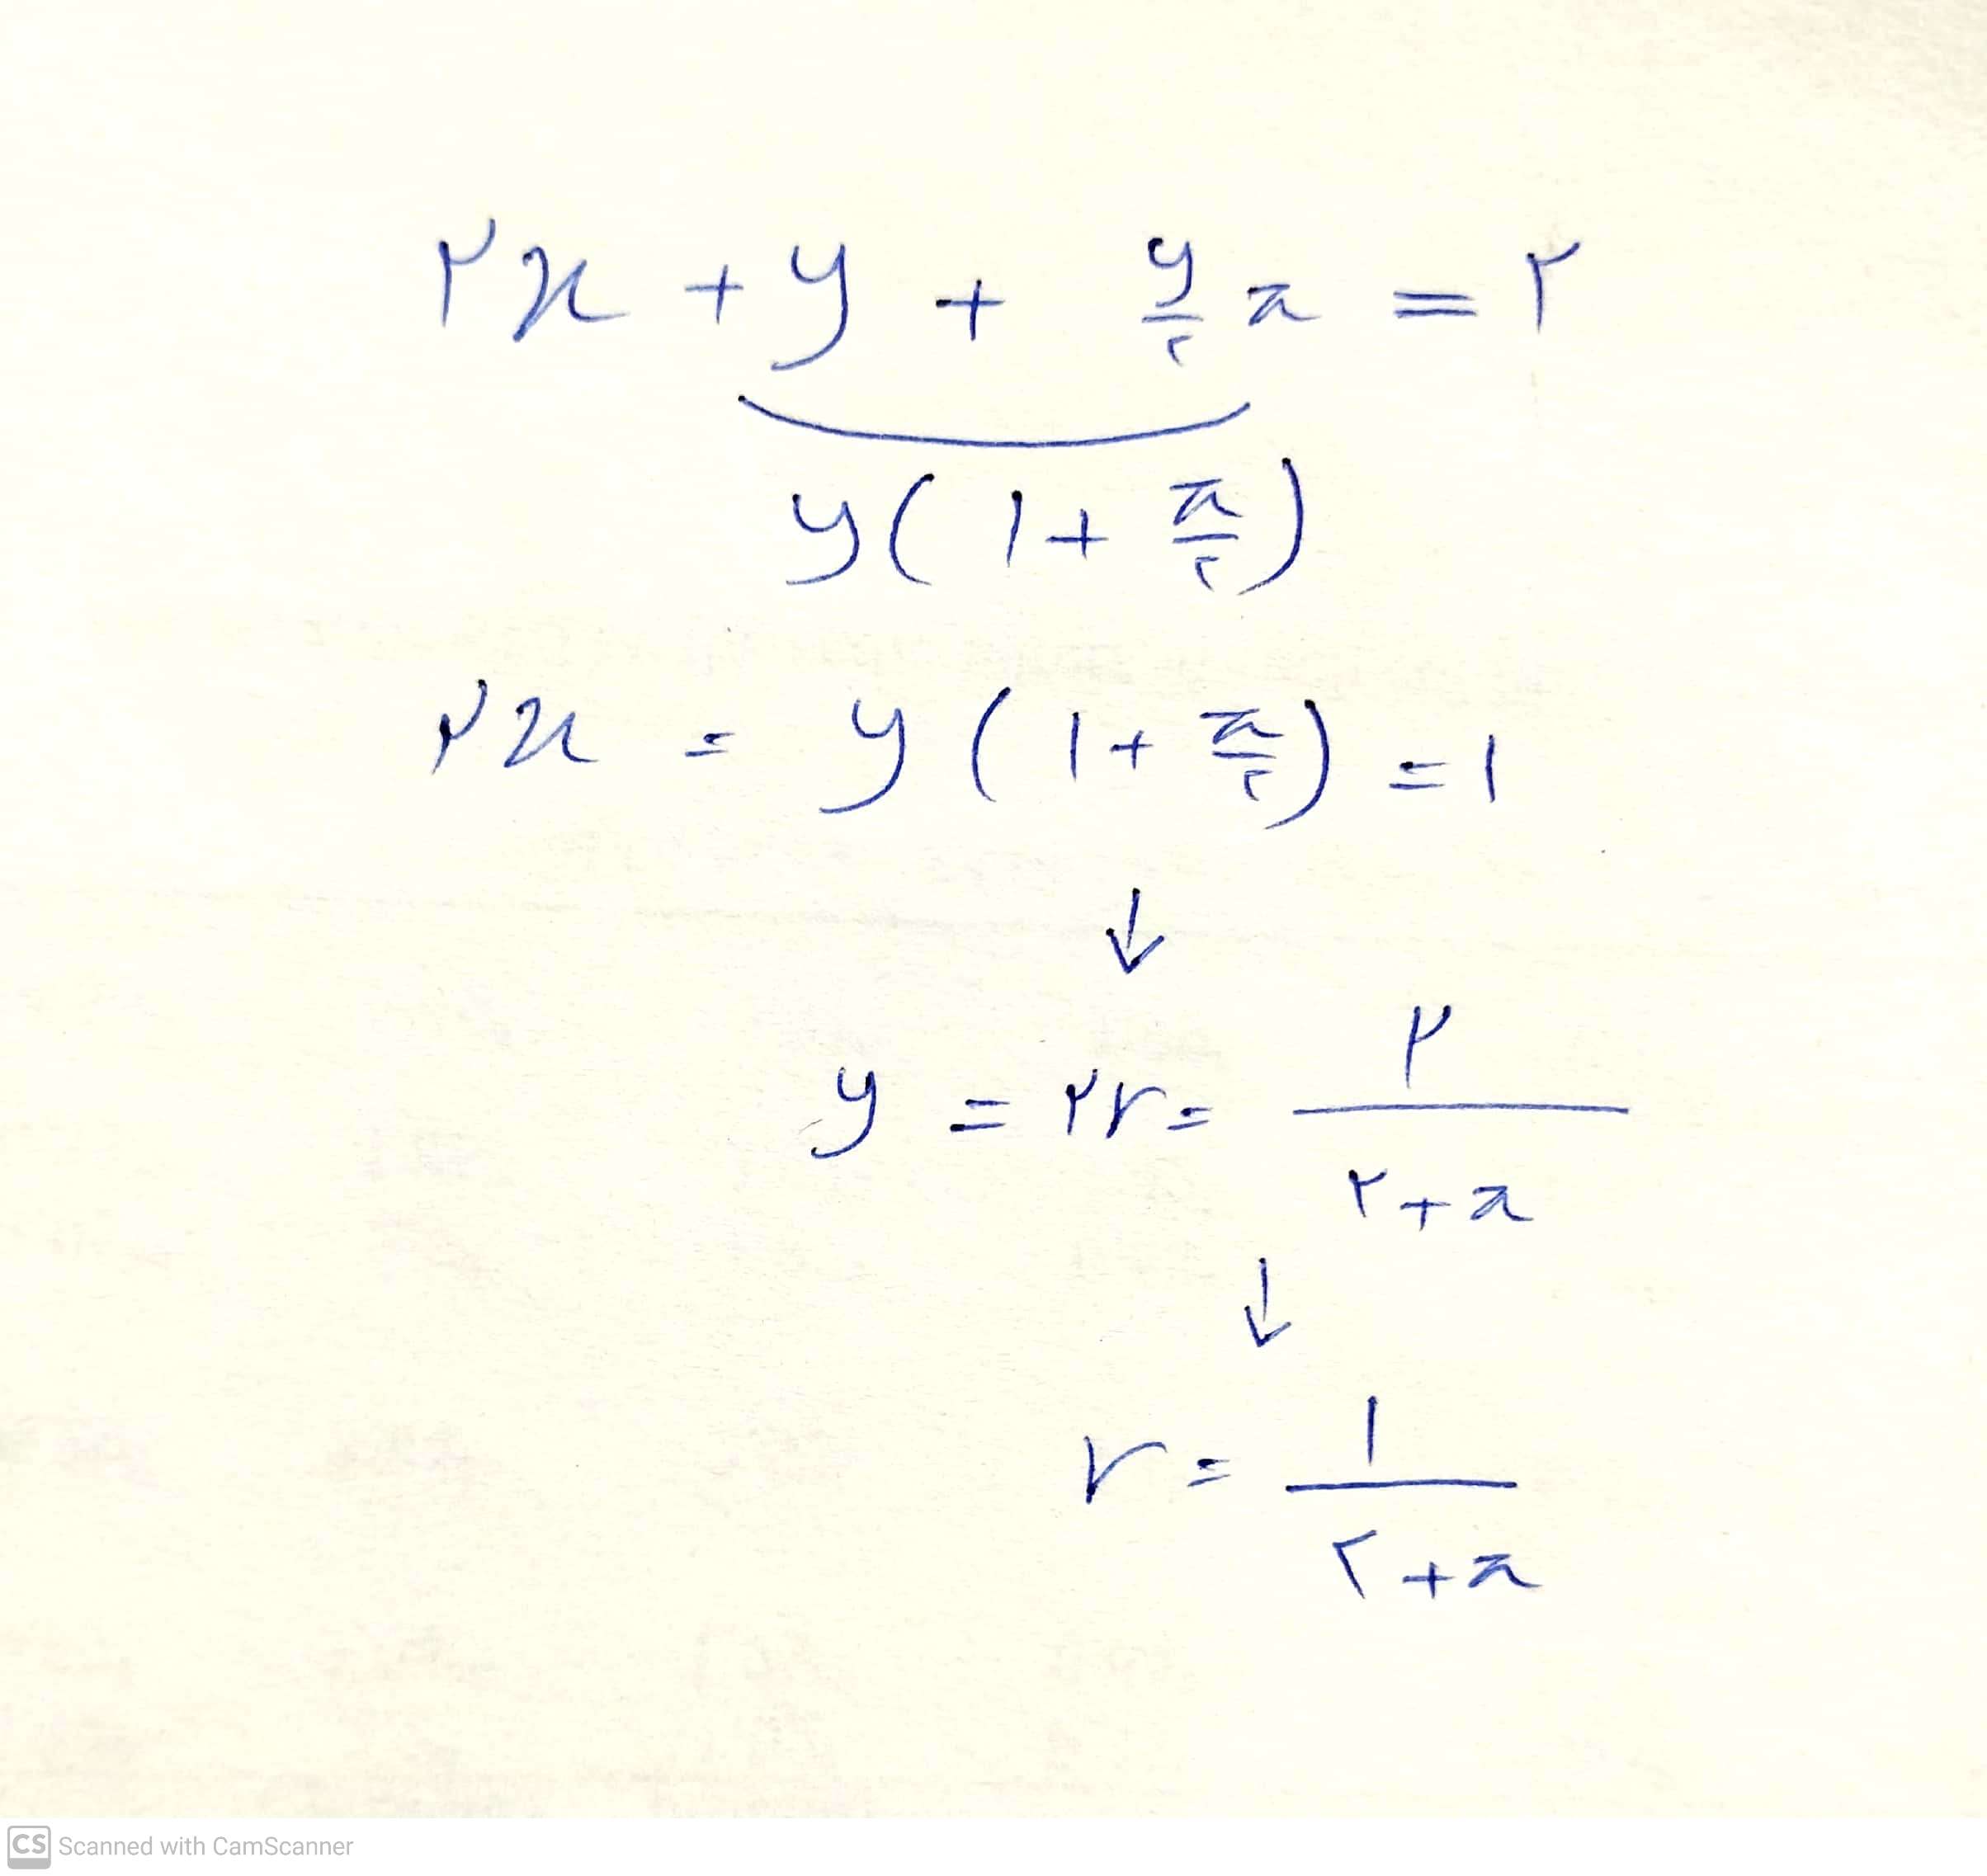 ۲x + y + y/۲ π = ۲
y(۱ + π/۲)
۲x = y(۱ + π/۲) = ۱
↓
y = ۲r = ۲/(۲+π)
↓
r = ۱/(۲+π)
CS Scanned with CamScanner